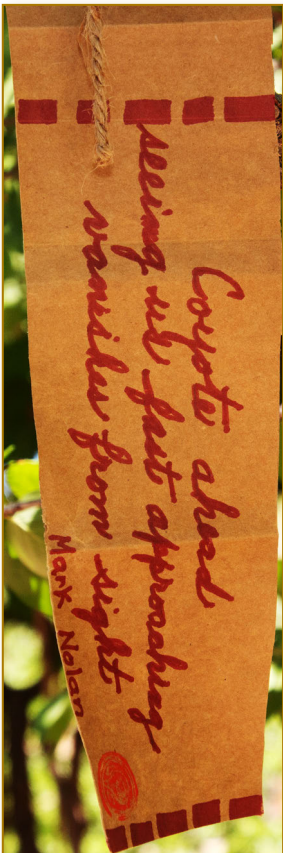 Coyote ahead
seeing us fast approaching
vanishes from sight
Mark Nolan